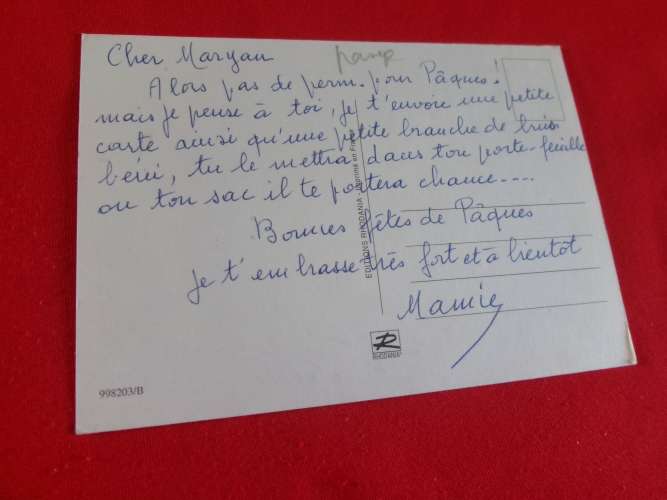 Cher Maryan
Alors pas de perm. pour Pâques!
mais je pense à toi, je t'envoie une petite
carte ainsi qu'une petite branche de buis
béni, tu le mettra dans ton porte-feuille
ou ton sac il te portera chance----
Bonnes fêtes de Pâques
je t'embrasse très fort et à bientôt
Mamie
EDITIONS RHODANIA - Imprimé en
RHODANIA
998203/B